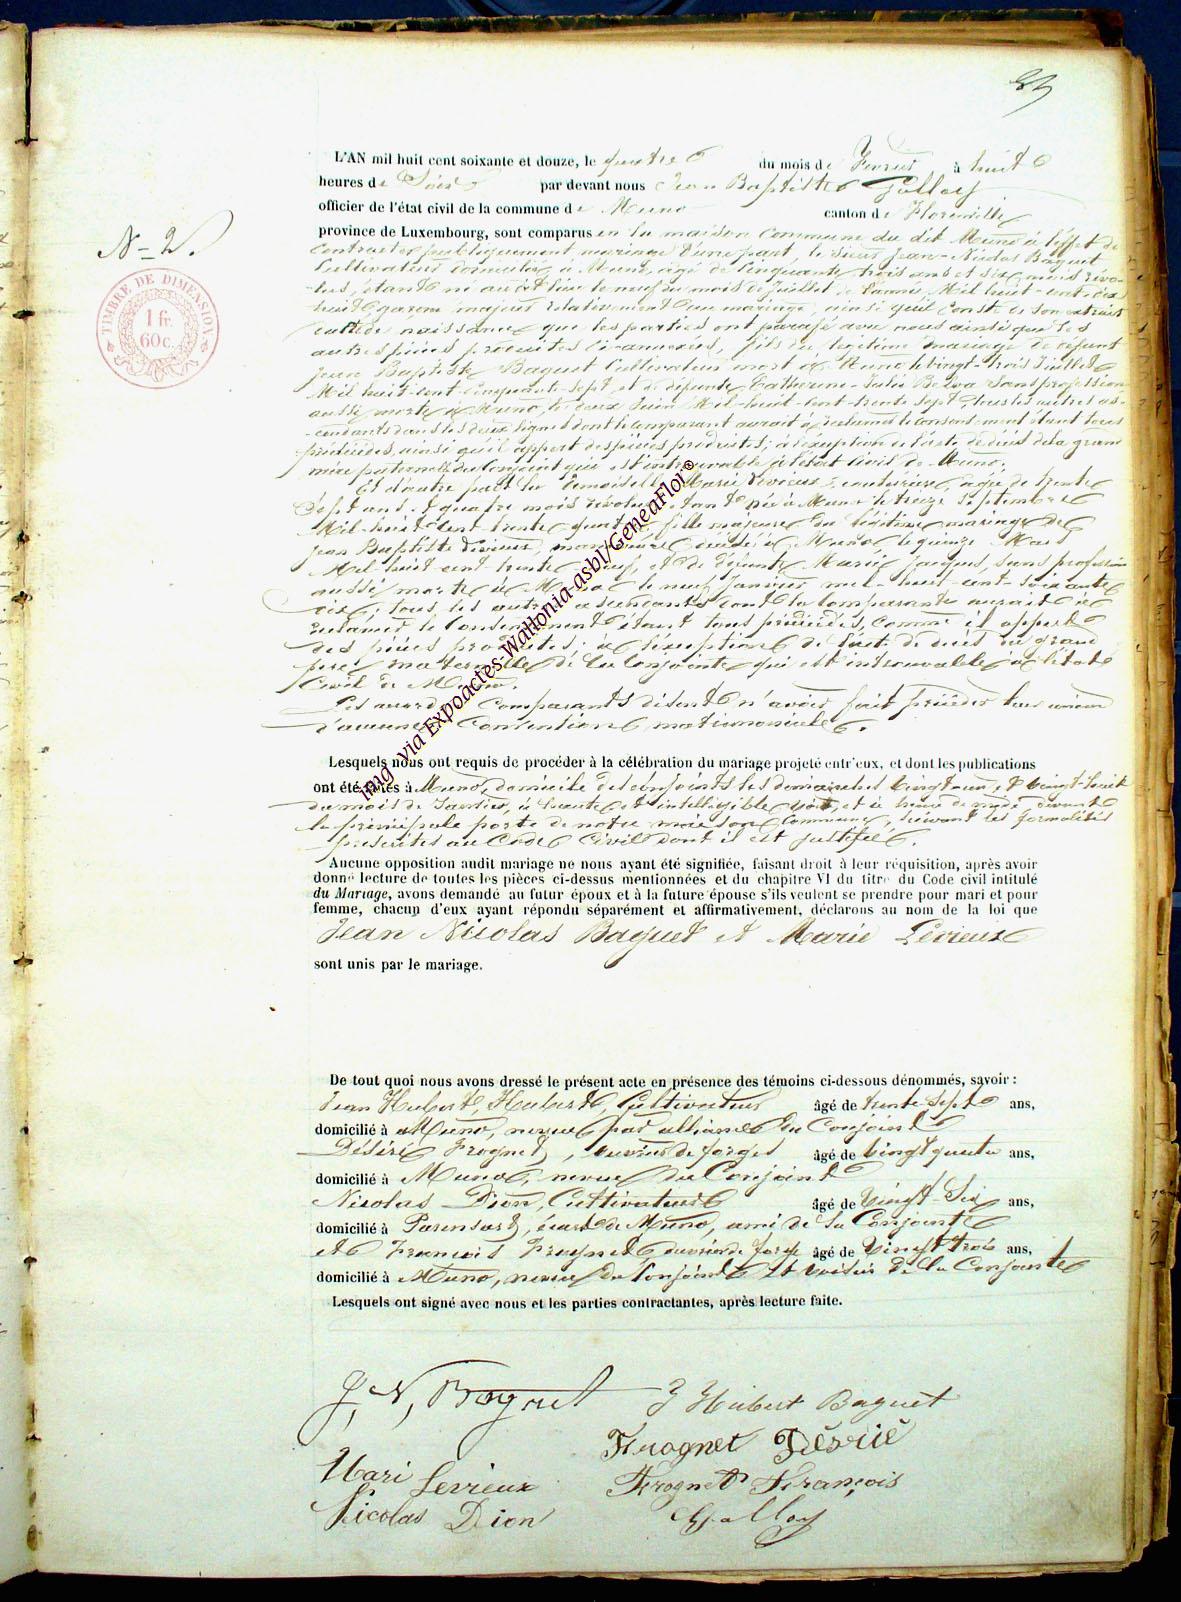 L'AN mil huit cent soixante et douze, le quatre du mois de Fevrier à huit
heures de Soir par devant nous Jean Baptiste Galloy
officier de l'état civil de la commune de Muno canton de Florenville
N° 2.
province de Luxembourg, sont comparus en la maison Commune du dit Muno à l'effet de
contracter publiquement mariage d'une part, le Sieur Jean-Nicolas Baguet
Cultivateur domicilié à Muno, agé de Cinquante trois ans et six mois révo-
-lus, étant né au dit lieu le neuf du mois de Juillet de l'année Mil huit-cent-dix
huit garçon majeur relativement au mariage, ainsi qu'il conste de son extrait
acte de naissance que les parties ont paraphé avec nous ainsi que les
autres pièces produites ci-annexées, fils du légitime mariage de défunt
Jean Baptiste Baguet Cultivateur mort à Muno le vingt-trois Juillet
Mil huit-cent-Cinquante-sept, et de défunte Catherine-Julie Sans profession
aussi morte à Muno, le deux Juin Mil-huit-cent-trente sept, tous les autres as-
-cendants dans les deux lignes dont le comparant aurait à réclamer le consentement étant tous
prédécédés, ainsi qu'il appert des pièces produites; à l'exception de l'acte de décès de la grand
mère paternelle du Conjoint qui est introuvable à l'état civil de Muno.
Et d'autre part la Demoiselle Marie Levieux, couturière, agée de trente
Sept ans & quatre mois révolus, étant née à Muno le treize Septembre
Mil-huit-cent-trente quatre, fille majeure du légitime mariage de
Jean Baptiste Levieux, décédé à Muno, le quinze Mars
Mil huit-cent-trente neuf, et de défunte Marie Jacques, sans profession
aussi morte à Muno le neuf Janvier mil-huit-cent-soixante
dix; tous les autres ascendants dont la Comparante aurait à
réclamer le Consentement étant tous prédécédés, comme il appert
des pièces produites; à l'exception de l'acte de décès du grand
père maternelle de la Conjointe qui est introuvable à l'état
Civil de Muno.
Les Comparants disent n'avoir fait précéder leur union
d'aucune Convention matrimoniale.
Lesquels nous ont requis de procéder à la célébration du mariage projeté entr'eux, et dont les publications
ont été faites à Muno, domicile des conjoints les dimanches vingt un & vingt-huit
du mois de Janvier, à haute et intelligible voix, et à heure de midi, devant
la principale porte de notre maison Commune, suivant les formalités
prescrites au Code Civil dont il est justifié.
Aucune opposition audit mariage ne nous ayant été signifiée, faisant droit à leur réquisition, après avoir
donné lecture de toutes les pièces ci-dessus mentionnées et du chapitre VI du titre du Code civil intitulé
du Mariage, avons demandé au futur époux et à la future épouse s'ils veulent se prendre pour mari et pour
femme, chacun d'eux ayant répondu séparément et affirmativement, déclarons au nom de la loi que
Jean Nicolas Baguet et Marie Levieux
sont unis par le mariage.
De tout quoi nous avons dressé le présent acte en présence des témoins ci-dessous dénommés, savoir :
Jean Hubert, Hubert, Cultivateur âgé de trente Sept ans,
domicilié à Muno, neveu par alliance du Conjoint
Désiré Frognet, ouvrier de forges âgé de vingt quatre ans,
domicilié à Muno, neveu du Conjoint
Nicolas Dion, Cultivateur âgé de Vingt-Six ans,
domicilié à écart de Muno, ami de la Conjointe
et François Frognet, ouvrier de forge âgé de Vingt trois ans,
domicilié à Muno, neveu du Conjoint et voisin de la Conjointe
Lesquels ont signé avec nous et les parties contractantes, après lecture faite.
J, N, Bagnet
J Hubert Baguet
Frognet Désiré
Mari Levieux
Frognet François
Nicolas Dion
Galloy
TIMBRE DE DIMENSION
1 fr.
60 c.
img via Expoactes-Wallonia-asbl/GeneaFlor®